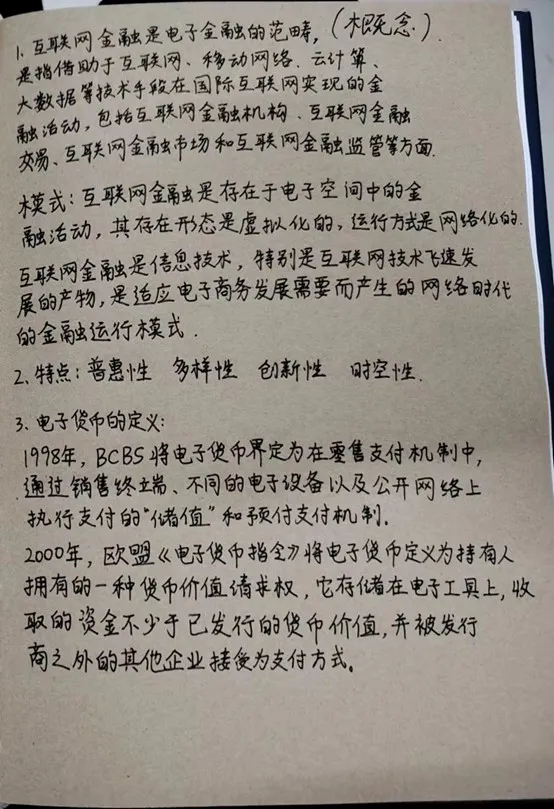 1. 互联网金融是电子金融的范畴，(概念).
是指借助于互联网、移动网络、云计算、
大数据等技术手段在国际互联网实现的金
融活动，包括互联网金融机构、互联网金融
交易、互联网金融市场和互联网金融监管等方面.
模式：互联网金融是存在于电子空间中的金
融活动，其存在形态是虚拟化的，运行方式是网络化的.
互联网金融是信息技术，特别是互联网技术飞速发
展的产物，是适应电子商务发展需要而产生的网络时代
的金融运行模式.
2. 特点：普惠性 多样性 创新性 时空性.
3. 电子货币的定义：
1998年，BCBS将电子货币界定为在零售支付机制中，
通过销售终端、不同的电子设备以及公开网络上
执行支付的"储值"和预付支付机制.
2000年，欧盟《电子货币指令》将电子货币定义为持有人
拥有的一种货币价值请求权，它存储在电子工具上，收
取的资金不少于已发行的货币价值，并被发行
商之外的其他企业接受为支付方式。